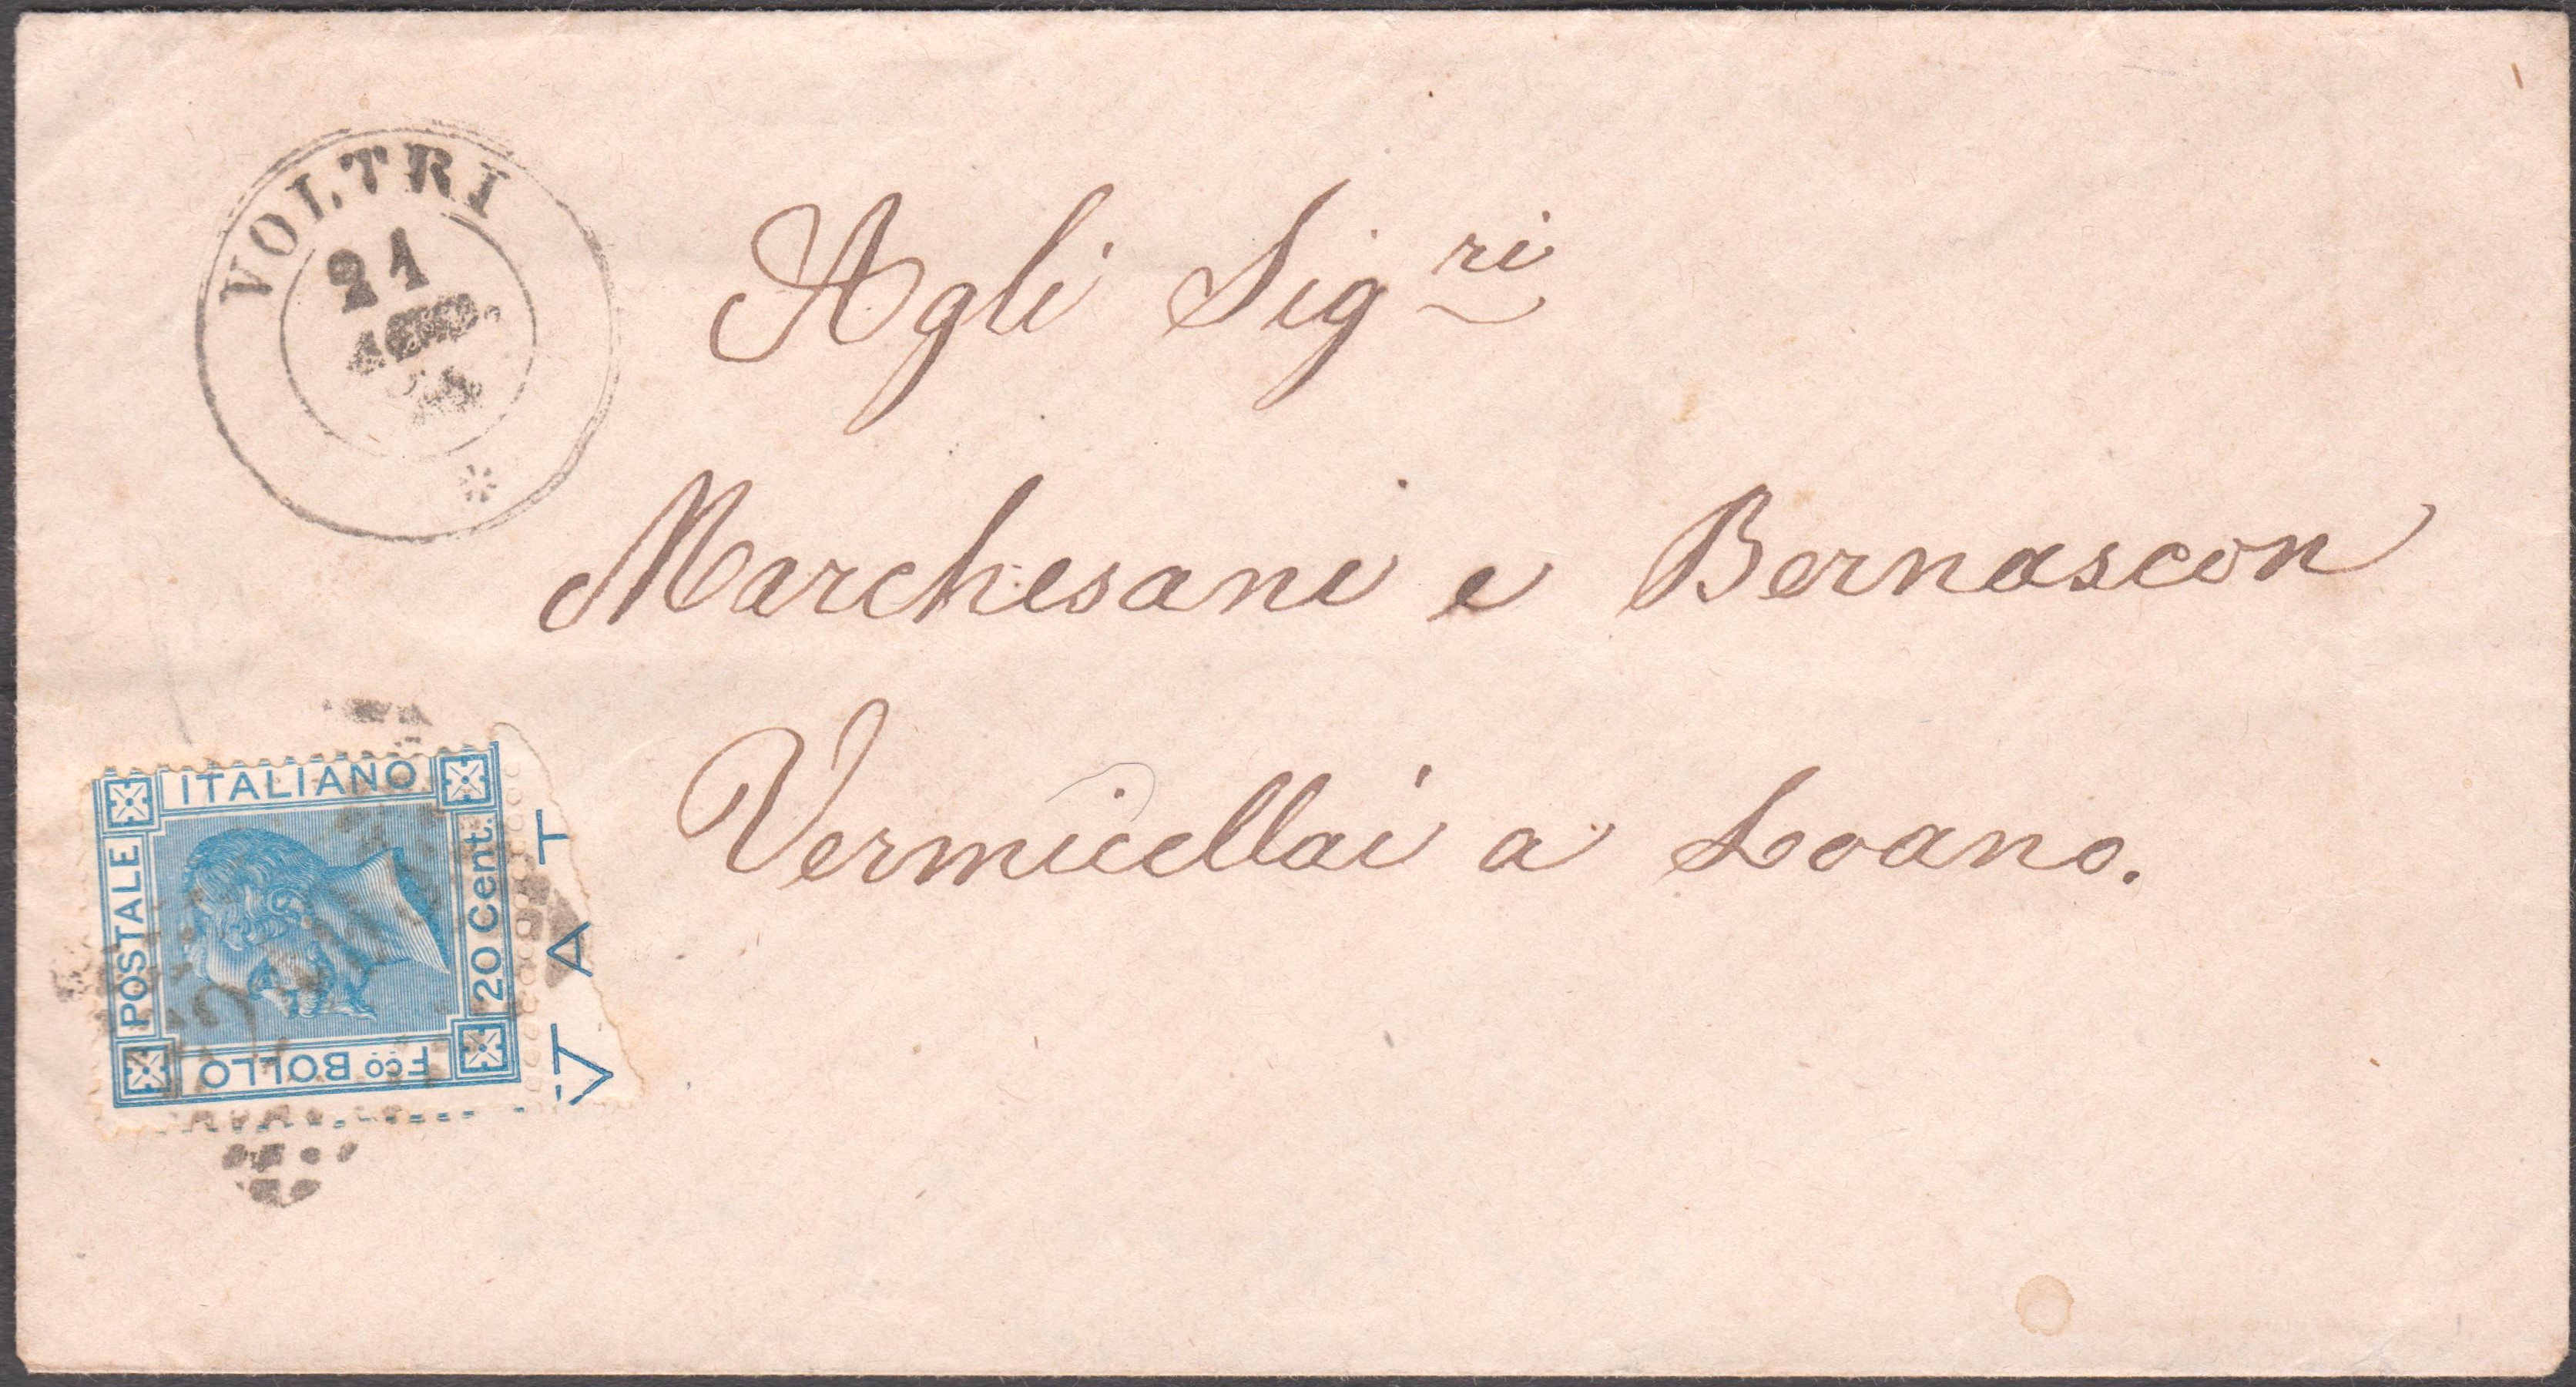 VOLTRI
21
AGO.
Agli Sigri
Marchesani e Bernascon
Vermicellai a Loano.
POSTALE
ITALIANO
20 Cent.
Fco BOLLO
VAT